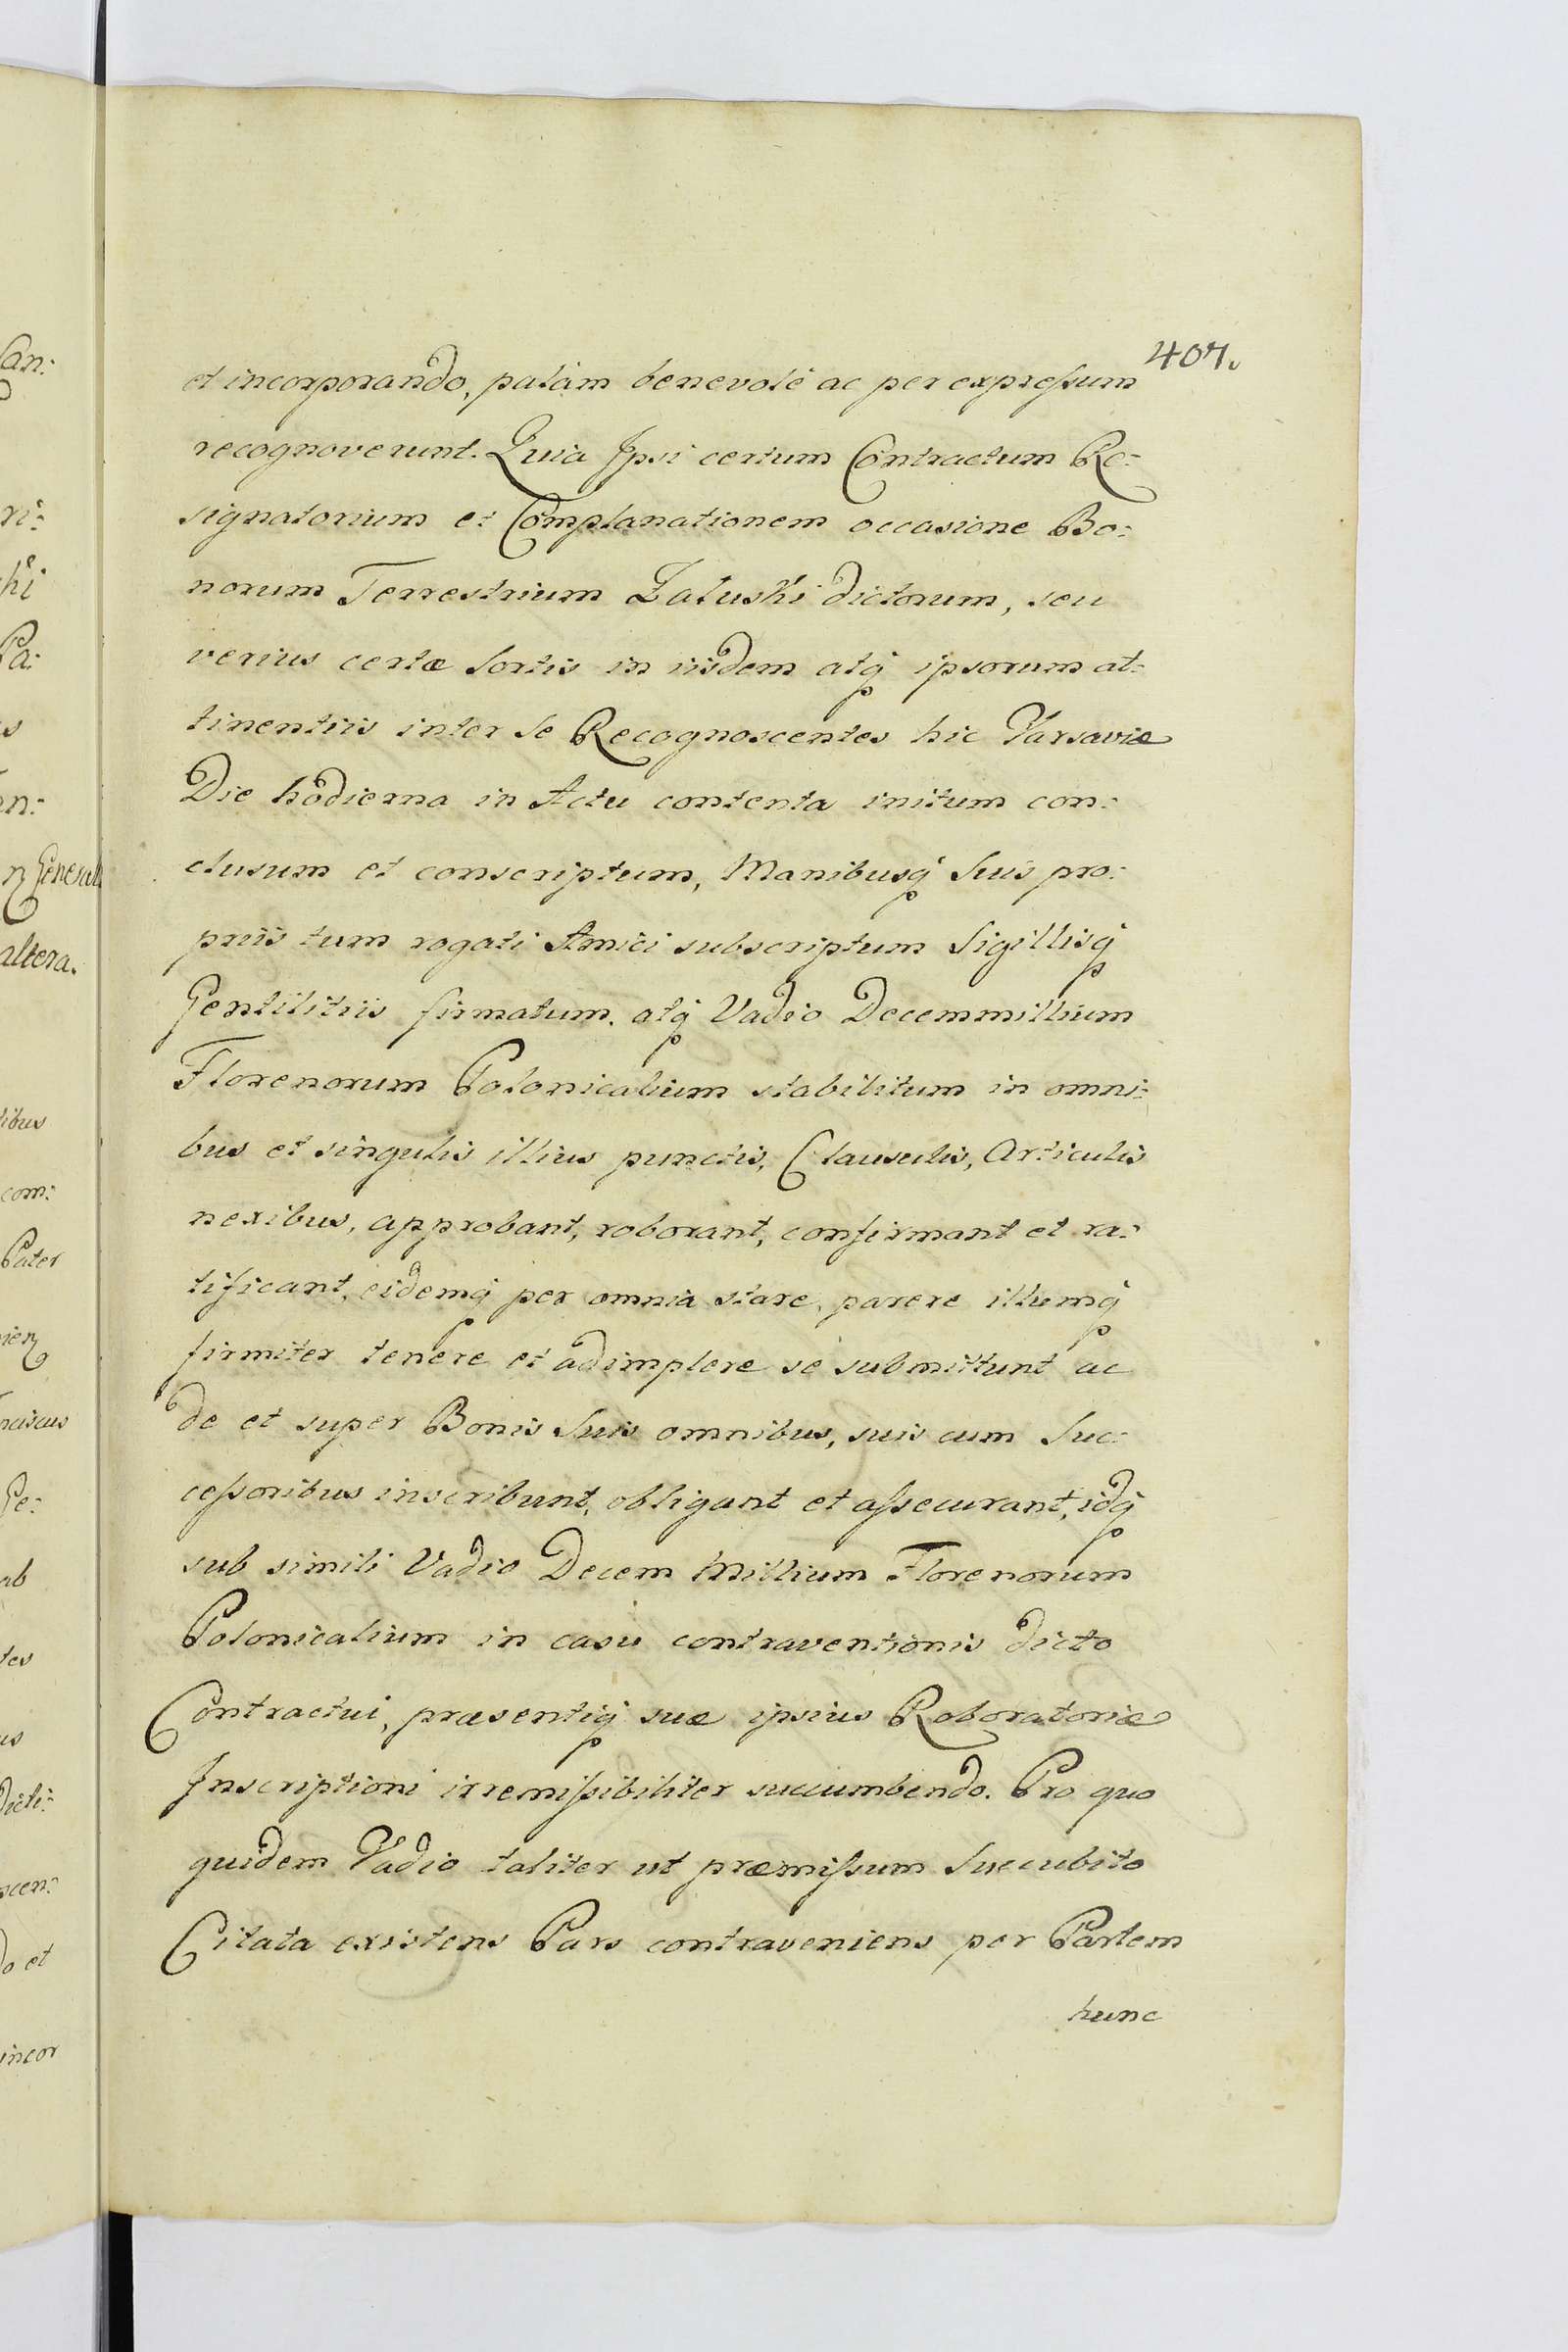 407.
et incorporando, palàm benevolè ac per expreſsum
recognoverunt. Quia Ipsi certum Contractum Re:
signatorium et Complanationem occasione Bo:
norum Terrestrium Załuski dictorum, seu
verius certæ Sortis in iisdem atq̀ ipsorum at:
tinentiis inter Se Recognoscentes hic Varsaviæ
Die hodierna in Actu contenta initum con:
clusum et conscriptum, Manibusq̀ Suis pro:
priis tum rogati Amici subscriptum Sigillisq̀
Gentilitiis firmatum. atq̀ Vadio Decemmillium
Florenorum Polonicalium stabilitum in omni:
bus et singulis illius punctis, Clausulis, Articulis
nexibus, approbant, roborant, confirmant et ra:
tificant, eidemq̀ per omnia stare, parere illumq̀
firmiter tenere et adimplere se submittunt ac
de et super Bonis Suis omnibus, suis cum Suc:
ceſsoribus inscribunt, obligant et aſsecurant, idq̀
sub simili Vadio Decem Millium Florenorum
Polonicalium in casu contraventionis dicto
Contractui, præsentiq̀ suæ ipsius Roboratoriæ
Inscriptioni irremiſsibiliter succumbendo. Pro quo
quidem Vadio taliter ut præmiſsum Succubito
Citata existens Pars contraveniens per Partem
hunc